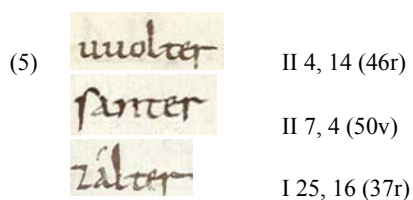 (5) uuolter II 4, 14 (46r)
santer II 7, 4 (50v)
zálter I 25, 16 (37r)